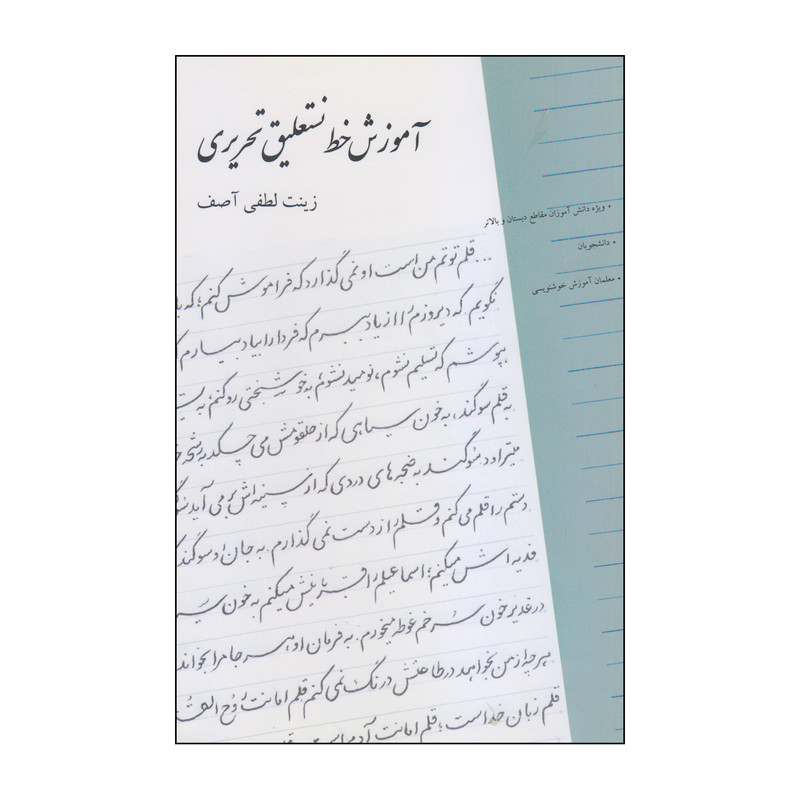 آموزش خط نستعلیق تحریری
زینت لطفی آصف
• ویژه دانش آموزان مقاطع دبستان و بالاتر
• دانشجویان
• معلمان آموزش خوشنویسی
...قلم توتم من است او نمی گذارد که فراموش کنم؛ که با
نگویم که دیروزم را از یاد ببرم که فردا را بیاد بیارم
بپوشم که تسلیم نشوم، نومید نشوم به خوشبختی رو کنم به
به قلم سوگند، به خون سیاهی که از حلقومش می چکد به رشحه
میتراود سوگند به ضجه های دردی که از سینه اش بر می آید
دستم را قلم می کنم و قلم را از دست نمی گذارم. به جان او سوگند
فدیه اش میکنم؛ اسماعیلم را قربانیش میکنم به خون
در غدیر خون سرخم غوطه میخورم. به فرمان او هر جا مرا بخواند
هر چه از من بخواهد در طاعتش درنگ نمی کنم قلم امانت روح القد
قلم زبان خداست؛ قلم امانت آدم است